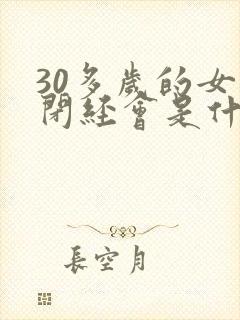 30多歲的女
閉經會是什
長空月